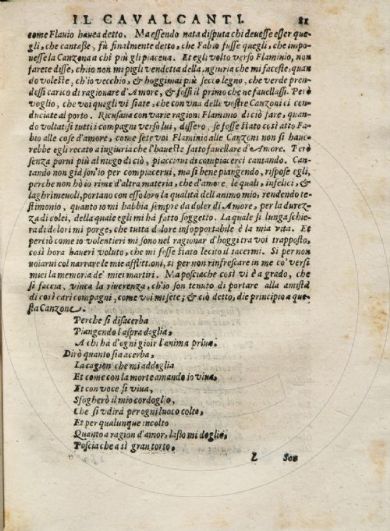 IL CAVALCANTI. 81
come Flavio havea detto. Ma essendo nata disputa chi devesse esser que
gli, che cantasse, fù finalmente detto, che Fabio fusse quegli, che impo
nesse la Canzona a chi più gli piacena. Et egli volto verso Flaminio, non
farete disse, ch'io non mi pigli vendetta della ingiuria che mi faceste, quan
do voleste, ch'io vecchio, & hoggimai più secco legno, che verde pren-
dessi carico di ragionar d'Amore, & fossi il primo che ne favellassi. Però
voglio, che voi quegli vi siate, che con una delle vostre Canzoni ci con
duciate al porto. Ricusava con varie ragioni Flaminio di ciò fare, quan
do voltatisi tutti i compagni verso lui, dissero, se fosse stato così atto Fa-
bio alle cose d'amore, come sete voi Flaminio alle Canzoni non si havre-
bbe egli recato a ingiuria che l'haveste fatto favellare d'Amore. Però
senza porvi più al niego di ciò, piacciavi di compiacerci cantando. Can-
tando non già son'io per compiacervi, ma si bene piangendo, rispose egli,
perche non hò io rime d'altra materia, che d'amore, le quali, infelici, &
laghrimevoli, portano con esso loro la qualità dell'animo mio, rendendo te-
stimonio, quanto io mi habbia sempre da doler di Amore, per la durez-
za di colei, della quale egli mi hà fatto soggetto. La quale si lunga schie-
ra di dolori mi porge, che tutta dolore insopportabile è la mia vita. Et
perciò come io volentieri mi sono nel ragionar d'hoggi tra voi trapposto,
così hora haverei voluto, che mi fosse stato lecito il tacermi. Sì per non
noiarvi col narrare le mie afflittioni, sì per non rinfrescare in me co' versi
miei la memoria de' miei martiri. Ma posciache così vi è a grado, che
si faccia, vinca la riverenza, ch'io son tenuto di portare alla amistà
di così cari compagni, come voi mi sete; & ciò detto, diè principio a que
sta Canzone.
Perche si disacerba
Piangendo l'aspra doglia,
A chi hà d'ogni gioir l'anima priva.
Dirò quanto sia acerba,
La cagion che mi addoglia
Et come con la morte amando io viva,
Et con voce sì viva,
Sfogherò il mio cordoglio,
Che si udirà per ogni luoco colto,
Et per qualunque incolto
Quanto a ragion d'amor, lasso mi doglio,
Toscia che a sì gran torto,
L Son